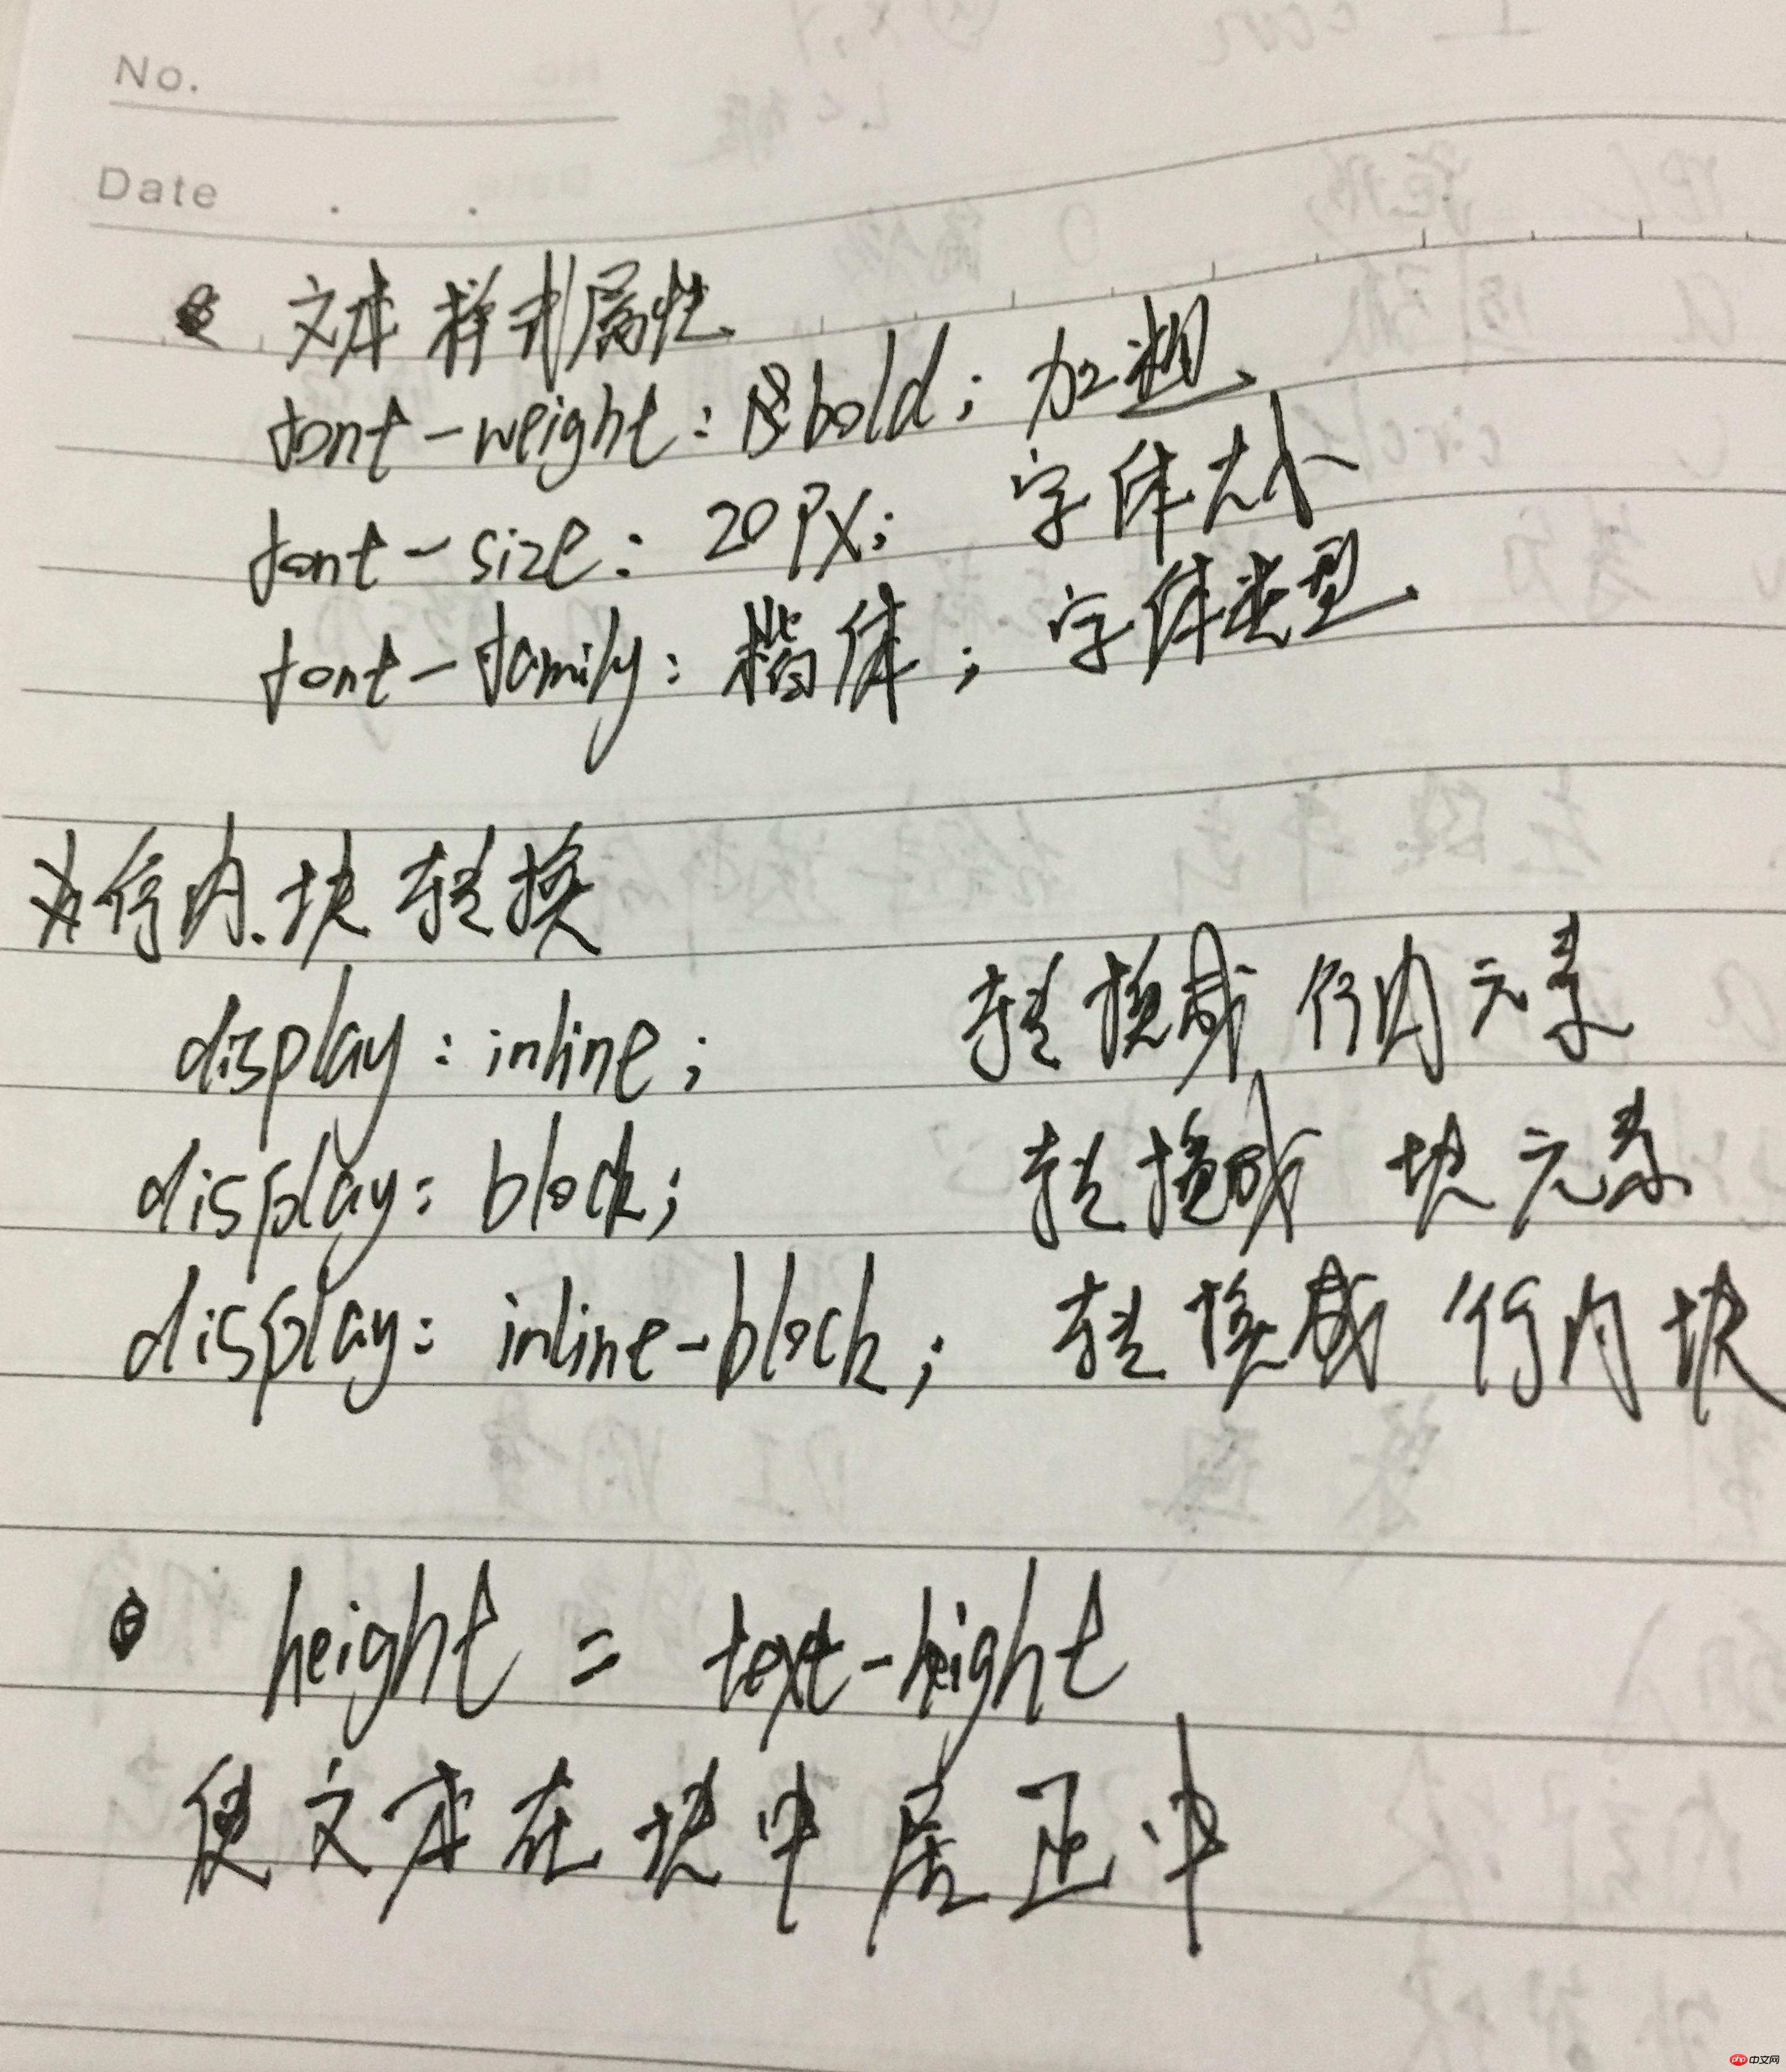 No.
Date . .
文本样式属性
font-weight: bold; 加粗
font-size: 20PX; 字体大小
font-family: 楷体; 字体类型
行内.块转换
display: inline; 转换成 行内元素
display: block; 转换成 块元素
display: inline-block; 转换成 行内块
height = text-height
使文本在块中居正中
php 中文网